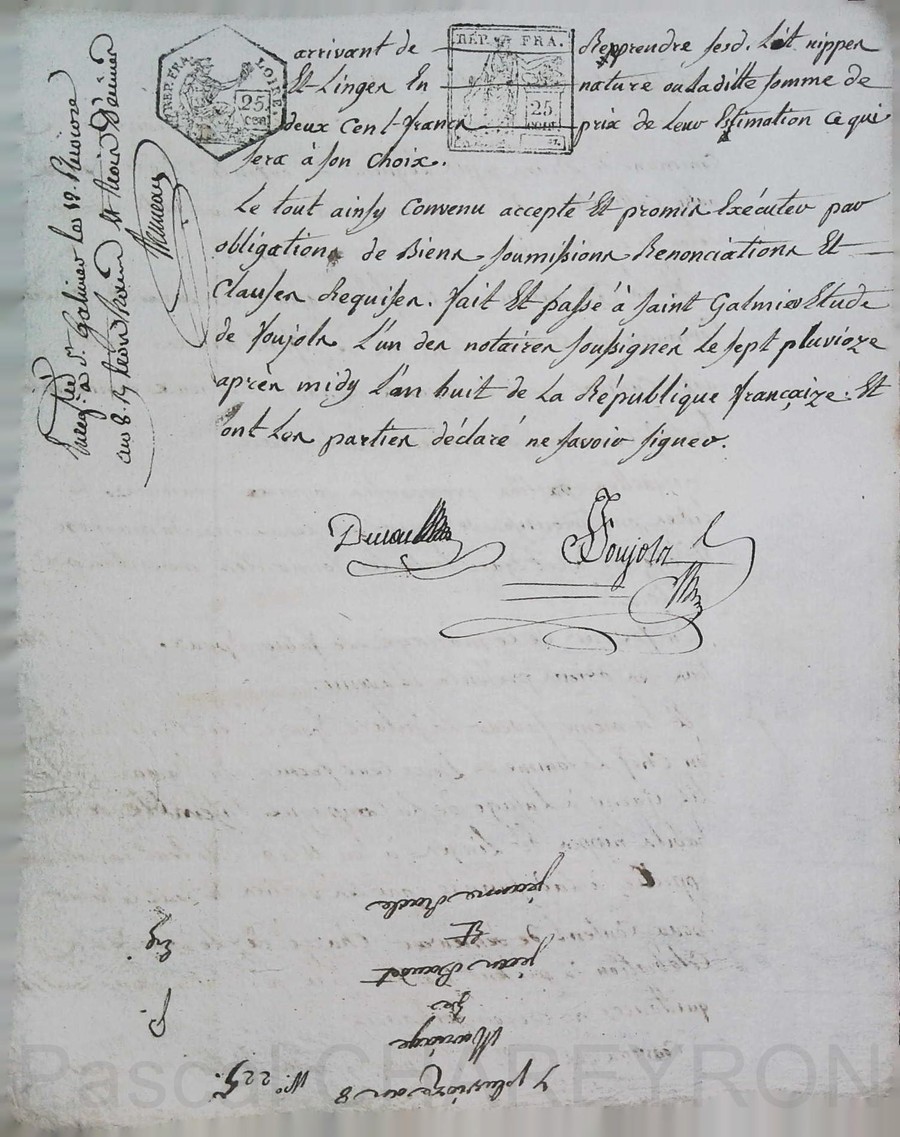 arrivant de Repprendre sesd. Lit nippes
Et Linges En nature ou laditte somme de
deux Cent francs prix de Leur Estimation Ce qui
sera à son Choix.
Le tout ainsy Convenu accepté Et promis Exécuter par
obligations de Biens soumissions Renonciations Et
Clauses Requises. fait Et passé à saint Galmier Etude
de Soujols L'un des notaires soussignés Le sept pluvioze
après midy L'an huit de La République françaize. Et
ont Les parties déclaré ne savoir signer.
RÉP. FRA. LOIRE.
25
CEN
RÉP. FRA.
25
CENT
à St. Galmier Les 12 Pluviose
an 8.
Soujols
jeanne
Et
jean
De
Mariage
7 pluvioze an 8
N°. 225.
Exp.
Pascal CHAREYRON